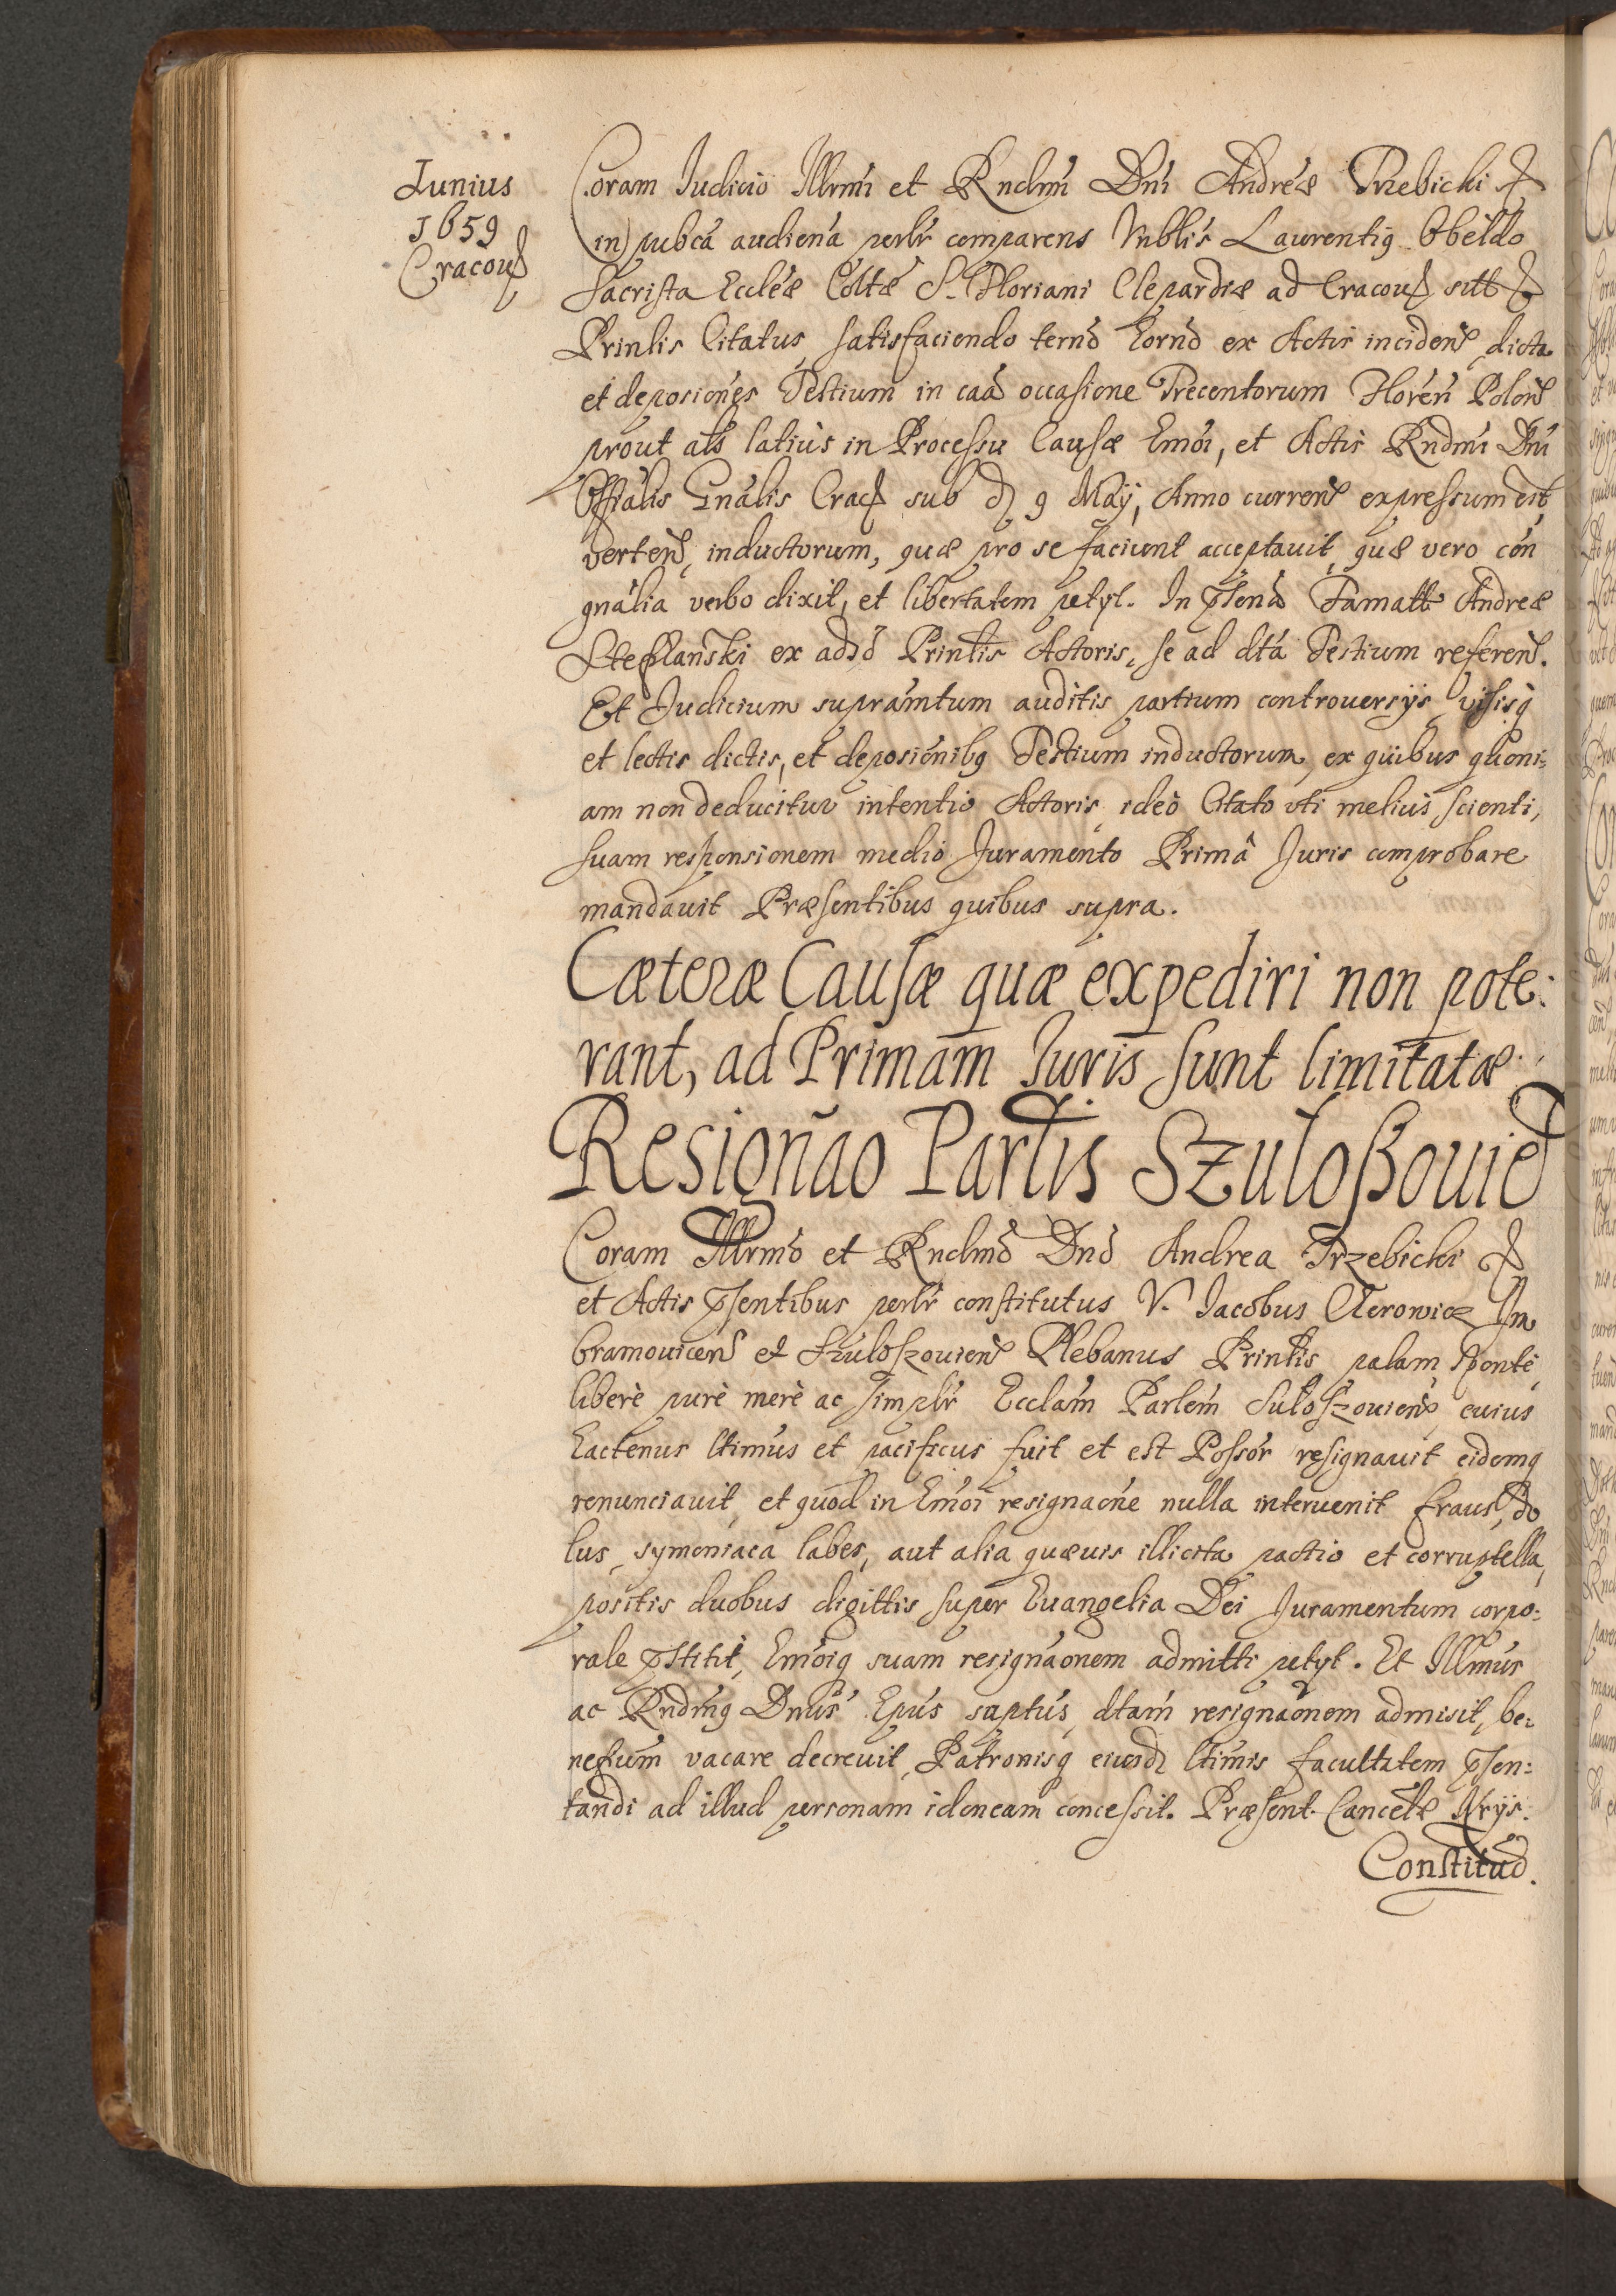 Junius
1659
Cracouꝭ
Coram Judicio Jllrmi et Rndmi Dni Andreæ Trzebicki ꝭ
in pubca audiena perlr comparens Vnblis Laurentiꝯ Obeldo
Sacrista Eccleæ Coltæ S. Floriani Clepardiæ ad Cracouꝭ sitt ꝭ
Prinlis Citatus, satisfaciendo termo horno ex Actis incidenꝭ, dicta
et deposiones Testium in caa occasione Trecentorum Floren Polonꝭ
prout als latius in Processu Causæ hmoi, et Actis Rndmi Dni
Offialis Gnalis Cracꝭ sub d 9 Maÿ, Anno currenꝭ expressum est
vertenꝭ, inductorum, quæ pro se faciunt acceptauit, quæ vero con
gnalia verbo dixit, et libertatem petyt. In pñtena Famatt Andreæ
Steplanski ex aduo Prinlis Actoris, se ad dta Testium referenꝭ.
Et Judicium supramtum auditis partium controuersÿs, visisqꝫ
et lectis dictis, et deposionibꝯ Testium inductorum, ex quibus quoni=
am non deducitur intentio Actoris, ideo Citato vti melius scienti,
suam responsionem medio Juramento Primâ Juris comprobare
mandauit Præsentibus quibus supra.
Cæteræ Causæ quæ expediri non pote:
rant, ad Primam Juris sunt limitatæ.
Resignao Parlis Szuloßouieꝭ
Coram Jllrmo et Rndmo Dno Andrea Trzebicki ꝭ
et Actis pñsentibus perlr constitutus V. Jacobus Clerowicz Im
bramouicenꝭ et Szuloszouienꝭ Plebanus Prinlis palam sponte,
liberè purè merè ac simplr Ecclam Parlem Suloszouienꝭ, cuius
hactenus ltimus et pacificus fuit et est Possor resignauit eidemqꝫ
renunciauit, et quod in hmoi resignaone nulla interuenit fraus, do
lus, symoniaca labes, aut alia quæuis illicita pactio et corruptella,
positis duobus digittis super Euangelia Dei Juramentum corpo:
rale pñstitit, hmoiqꝫ suam resignaonem admitti petyt. Et Jllmus
ac Rndmꝯ Dnus Epus suptus, dtam resignaonem admisit, be:
nefium vacare decreuit, Patronisqꝫ eiusd ltimis facultatem pñsen:
tandi ad illud personam idoneam concessit. Præsent. Cancell Nrÿs.
Constitud.